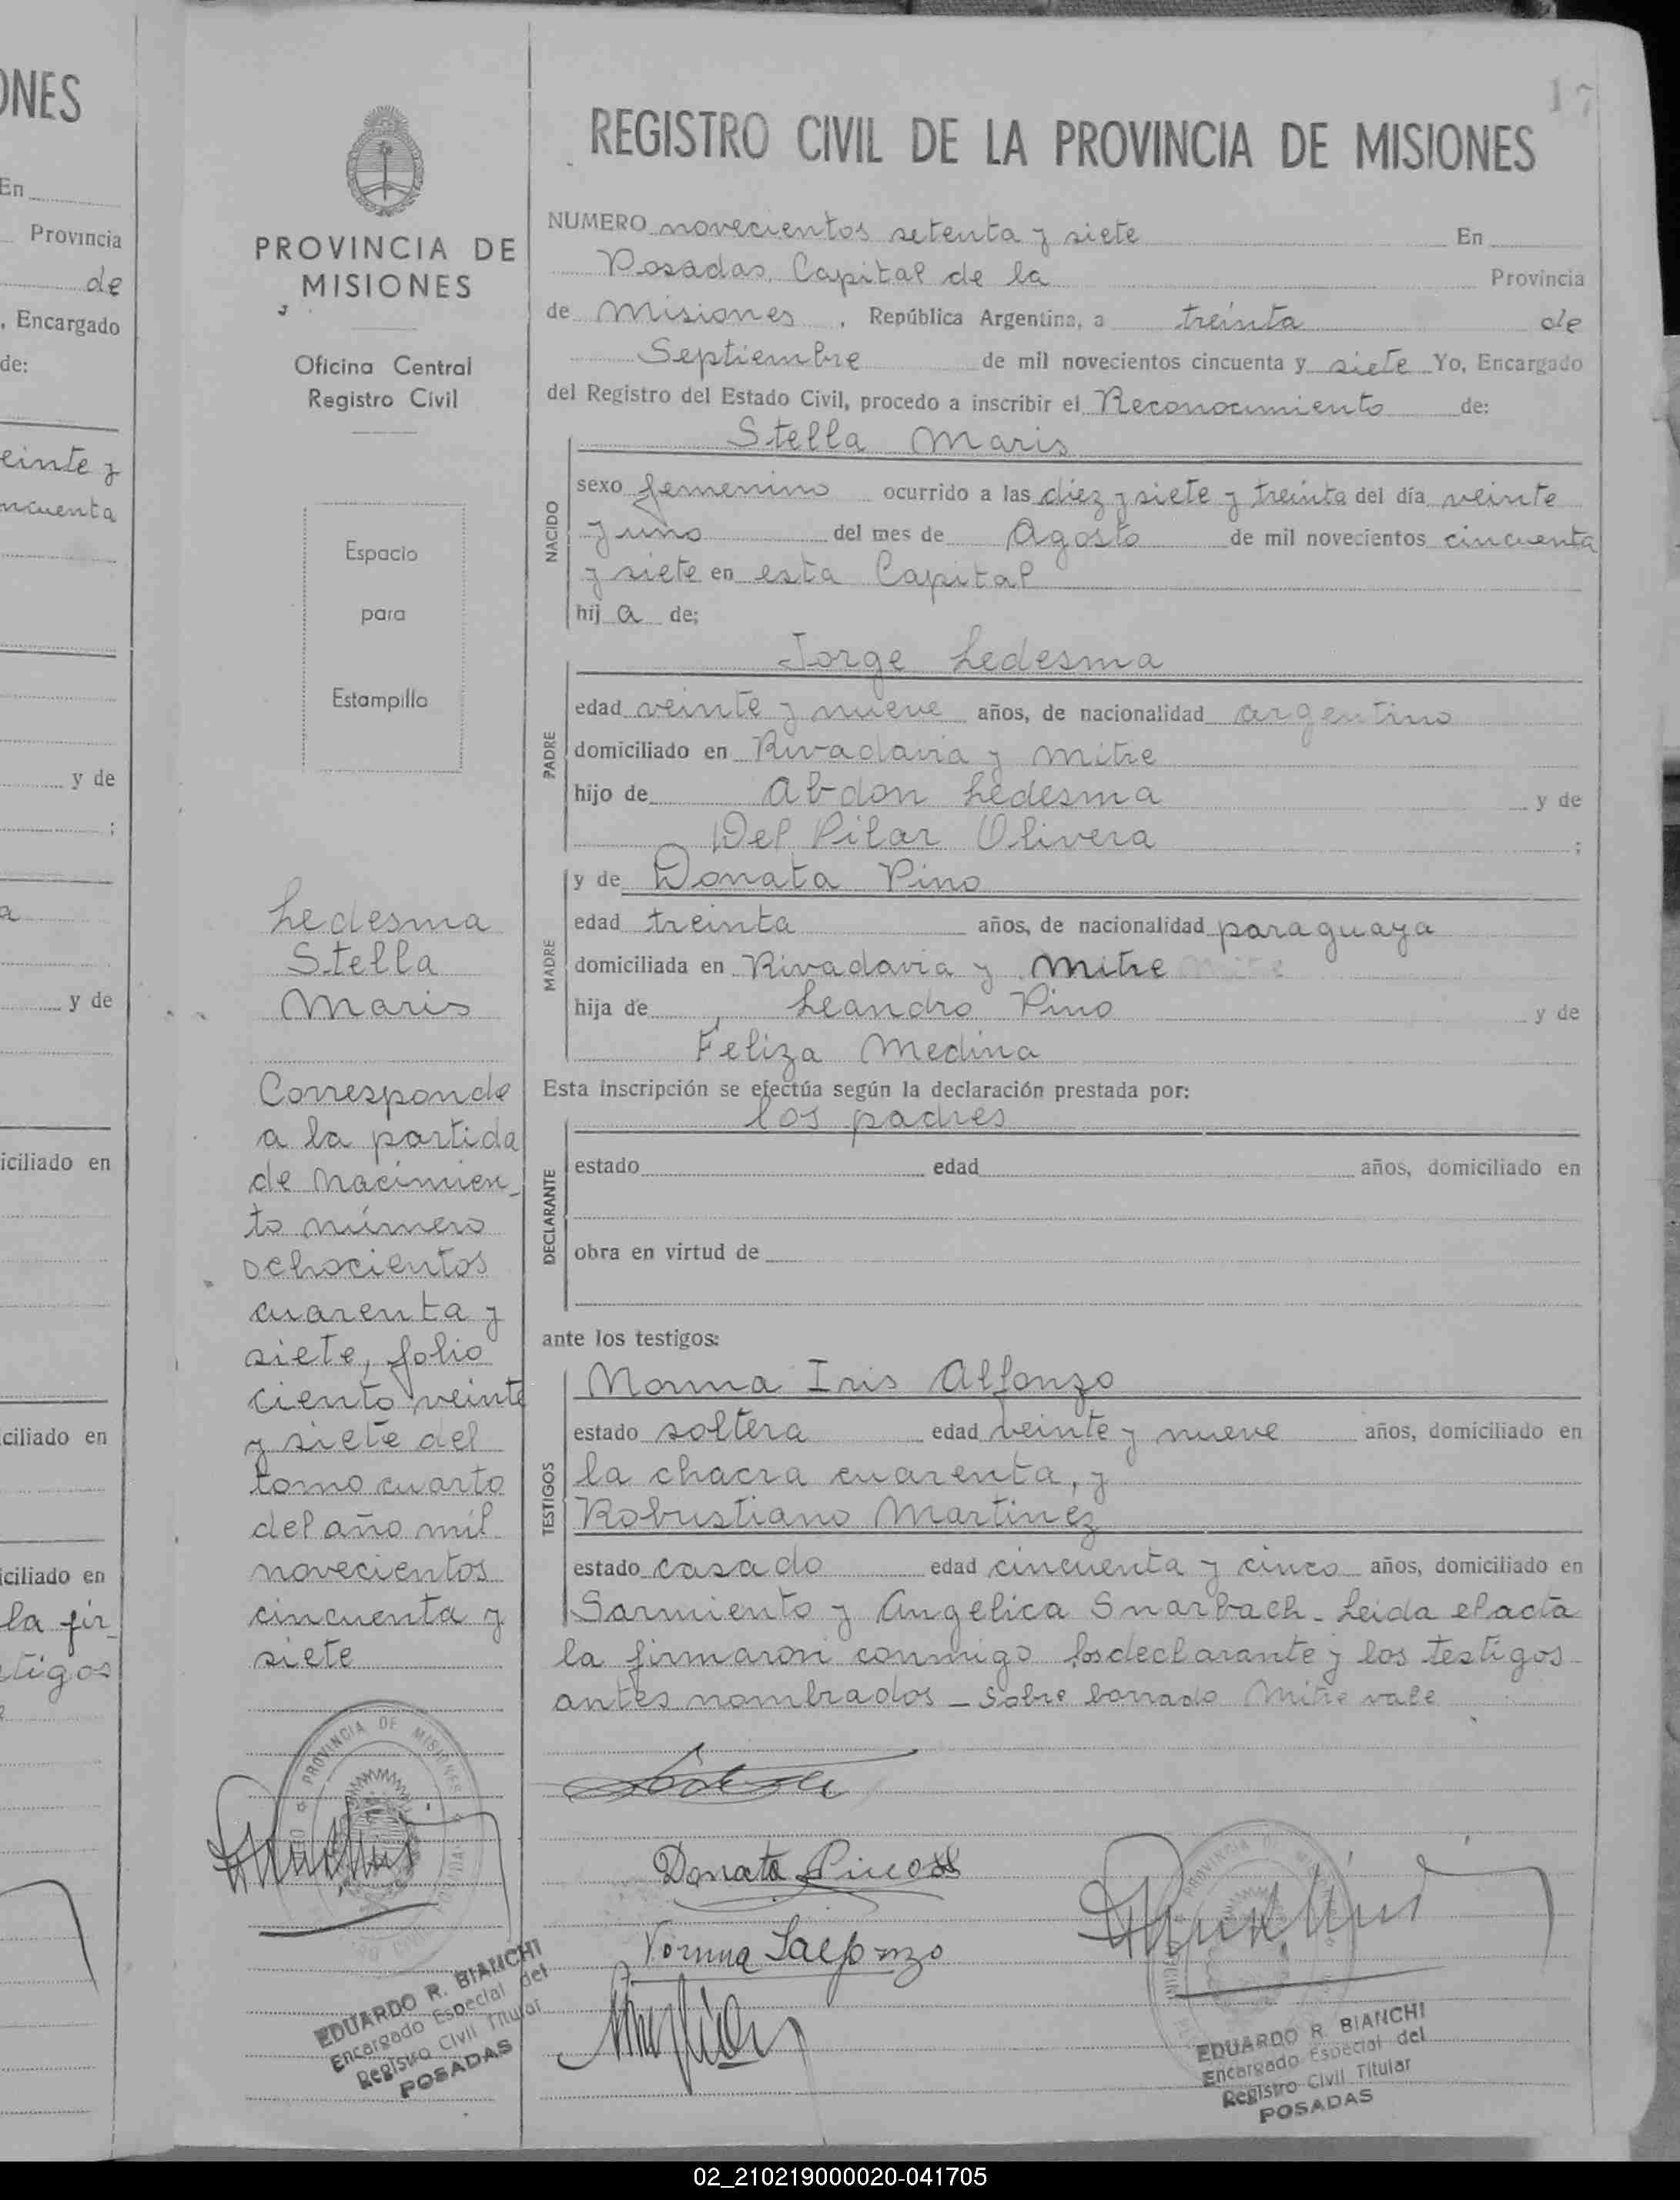 ONES
En
Provincia
de
, Encargado
de:
einte y
ncuenta
y de
;
a
y de
iciliado en
ciliado en
iciliado en
la fir_
stigos
17
PROVINCIA DE
MISIONES
Oficina Central
Registro Civil
Espacio
para
Estampilla
Ledesma
Stella
Maris
Corresponde
a la partida
de Nacimien_
to número
ochocientos
cuarenta y
siete, folio
ciento veinte
y siete del
tomo cuarto
del año mil
novecientos
cincuenta y
siete
PROVINCIA DE MISIONES
EDUARDO R. BIANCHI
Encargado Especial del
Registro Civil Titular
POSADAS
REGISTRO CIVIL DE LA PROVINCIA DE MISIONES
NUMERO novecientos setenta y siete En
Posadas, Capital de la Provincia
de Misiones , República Argentina, a treinta de
Septiembre de mil novecientos cincuenta y siete Yo, Encargado
del Registro del Estado Civil, procedo a inscribir el Reconocimiento de:
NACIDO
Stella Maris
sexo femenino ocurrido a las diez y siete y treinta del día veinte
y uno del mes de Agosto de mil novecientos cincuenta
y siete en esta Capital
hij a de;
PADRE
Jorge Ledesma
edad veinte y nueve años, de nacionalidad argentino
domiciliado en Rivadavia y Mitre
hijo de Abdon Ledesma y de
Del Pilar Olivera ;
MADRE
y de Donata Pino
edad treinta años, de nacionalidad paraguaya
domiciliada en Rivadavia y Mitre
hija de Leandro Pino y de
Feliza Medina
Esta inscripción se efectúa según la declaración prestada por:
los padres
DECLARANTE
estado edad años, domiciliado en
obra en virtud de
ante los testigos:
TESTIGOS
Norma Iris Alfonzo
estado soltera edad veinte y nueve años, domiciliado en
la chacra cuarenta, y
Robustiano Martinez
estado casado edad cincuenta y cinco años, domiciliado en
Sarmiento y Angelica Snarbach_ Leida el acta
la firmaron conmigo los declarante y los testigos
antes nombrados _ Sobre borrado Mitre vale
Donata Pino
Norma
PROVINCIA DE
EDUARDO R. BIANCHI
Encargado Especial del
Registro Civil Titular
POSADAS
02_210219000020-041705